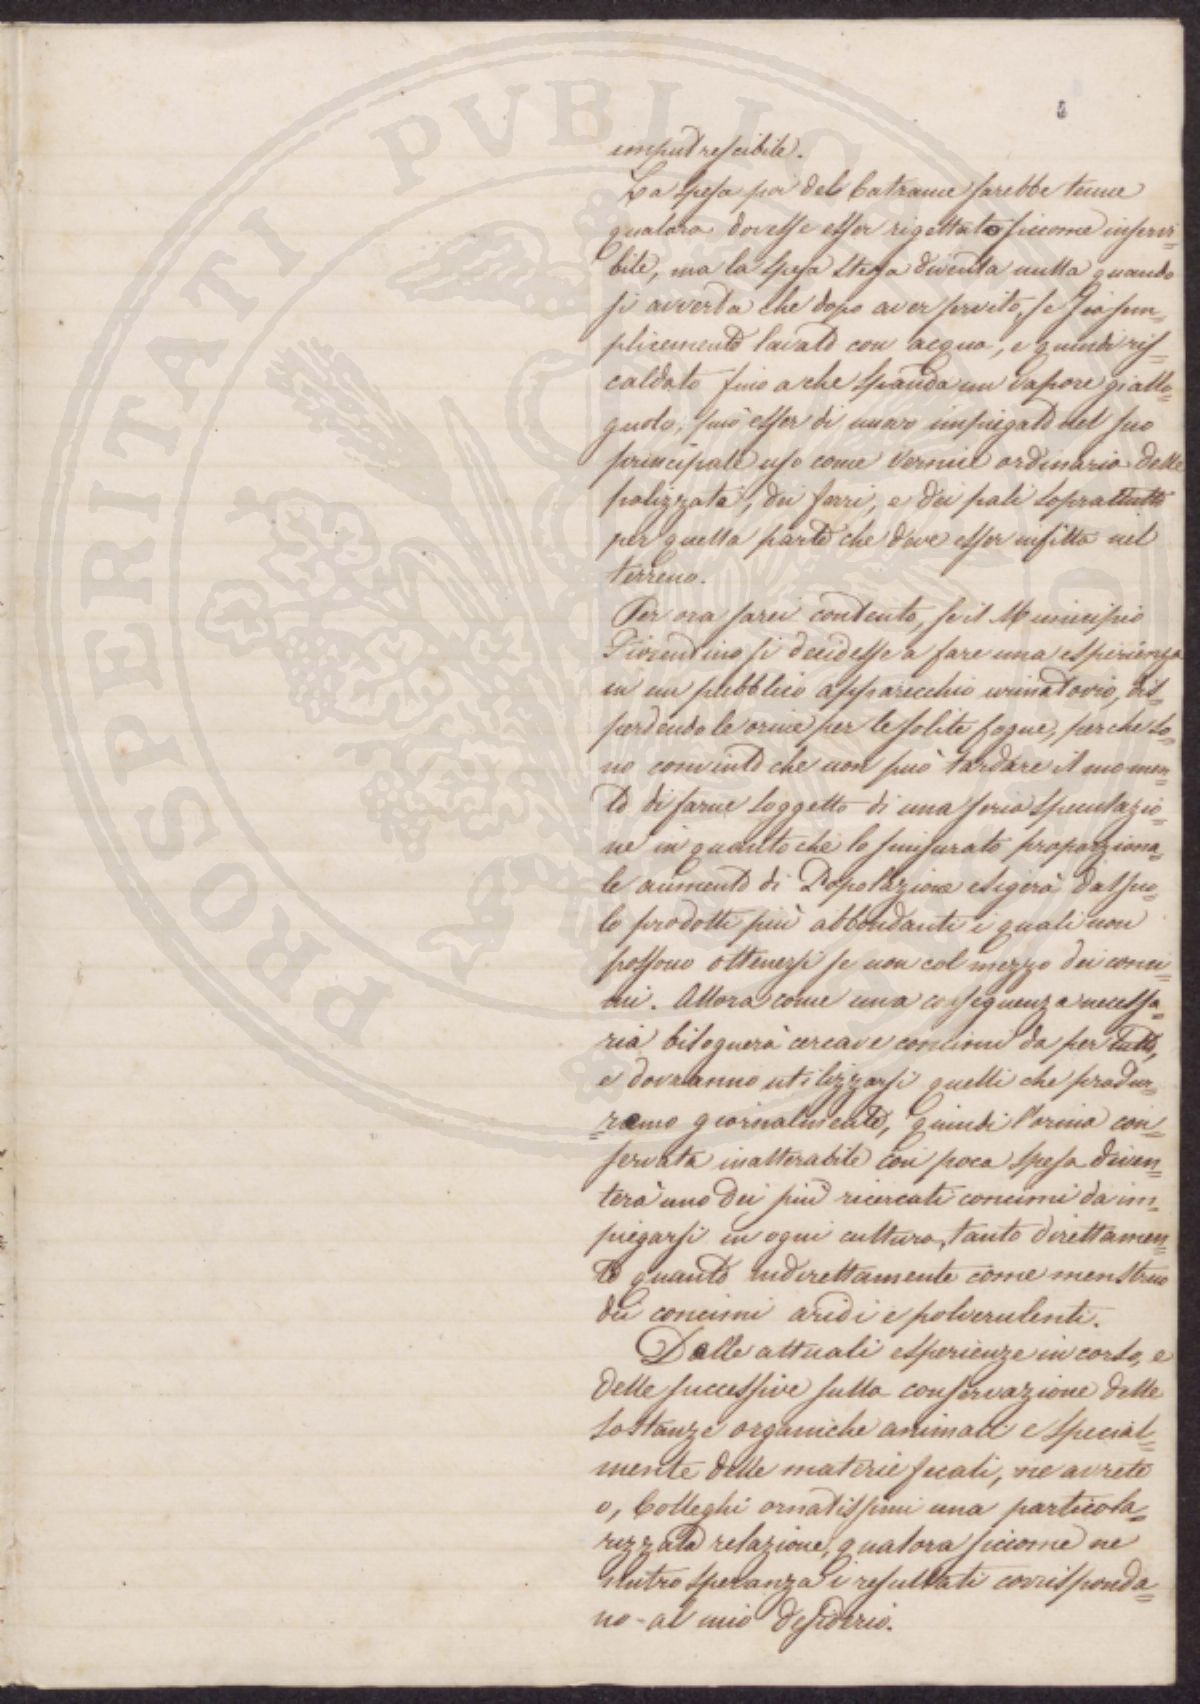 imputrescibile.
La spesa poi del Catrame sarebbe tenue
qualora dovesse esser rigettato siccome inservi=
bile, ma la spesa stessa diventa nulla quando
si avverta che dopo aver servito, se sia sem=
plicemente lavato con acqua, e quindi ris=
caldato fino a che spanda un vapore giallo=
gnolo, può esser di nuovo impiegato nel suo
principale uso come Vernice ordinaria delle
palizzate, dei ferri, e dei pali soprattutto
per quella parte che deve esser infitta nel
terreno.
Per ora sarei contento, se il Municipio
Fiorentino si decidesse a fare una esperienza
in un pubblico apparecchio urinatorio, dis=
perdendo le orine per le solite fogne, perche so=
no convinto che non può tardare il momen=
to di farne soggetto di una seria speculazio=
ne in quanto che lo smisurato proporziona=
le aumento di Popolazione esigerà dal suo=
lo prodotti più abbondanti i quali non
possono ottenersi se non col mezzo dei conci=
mi. Allora come una conseguenza necessa=
ria bisognerà cercare concimi da per tutto,
e dovranno utilizzarsi quelli che produr=
=remo giornalmente, quindi l'orina con=
servata inalterabile con poca spesa diven=
terà uno dei più ricercati concimi da im=
piegarsi in ogni cultura, tanto direttamen=
te quanto indirettamente come menstruo
dei concimi aridi e polverulenti.
Dalle attuali esperienze in corso, e
delle successive sulla conservazione delle
sostanze organiche animali e special=
mente delle materie fecali, ne avrete
o, Colleghi ornatissimi una particola=
rizzata relazione, qualora siccome ne
nutro speranza i resultati corrisponda=
no al mio desiderio.
PROSPERITATI PVBLICAE